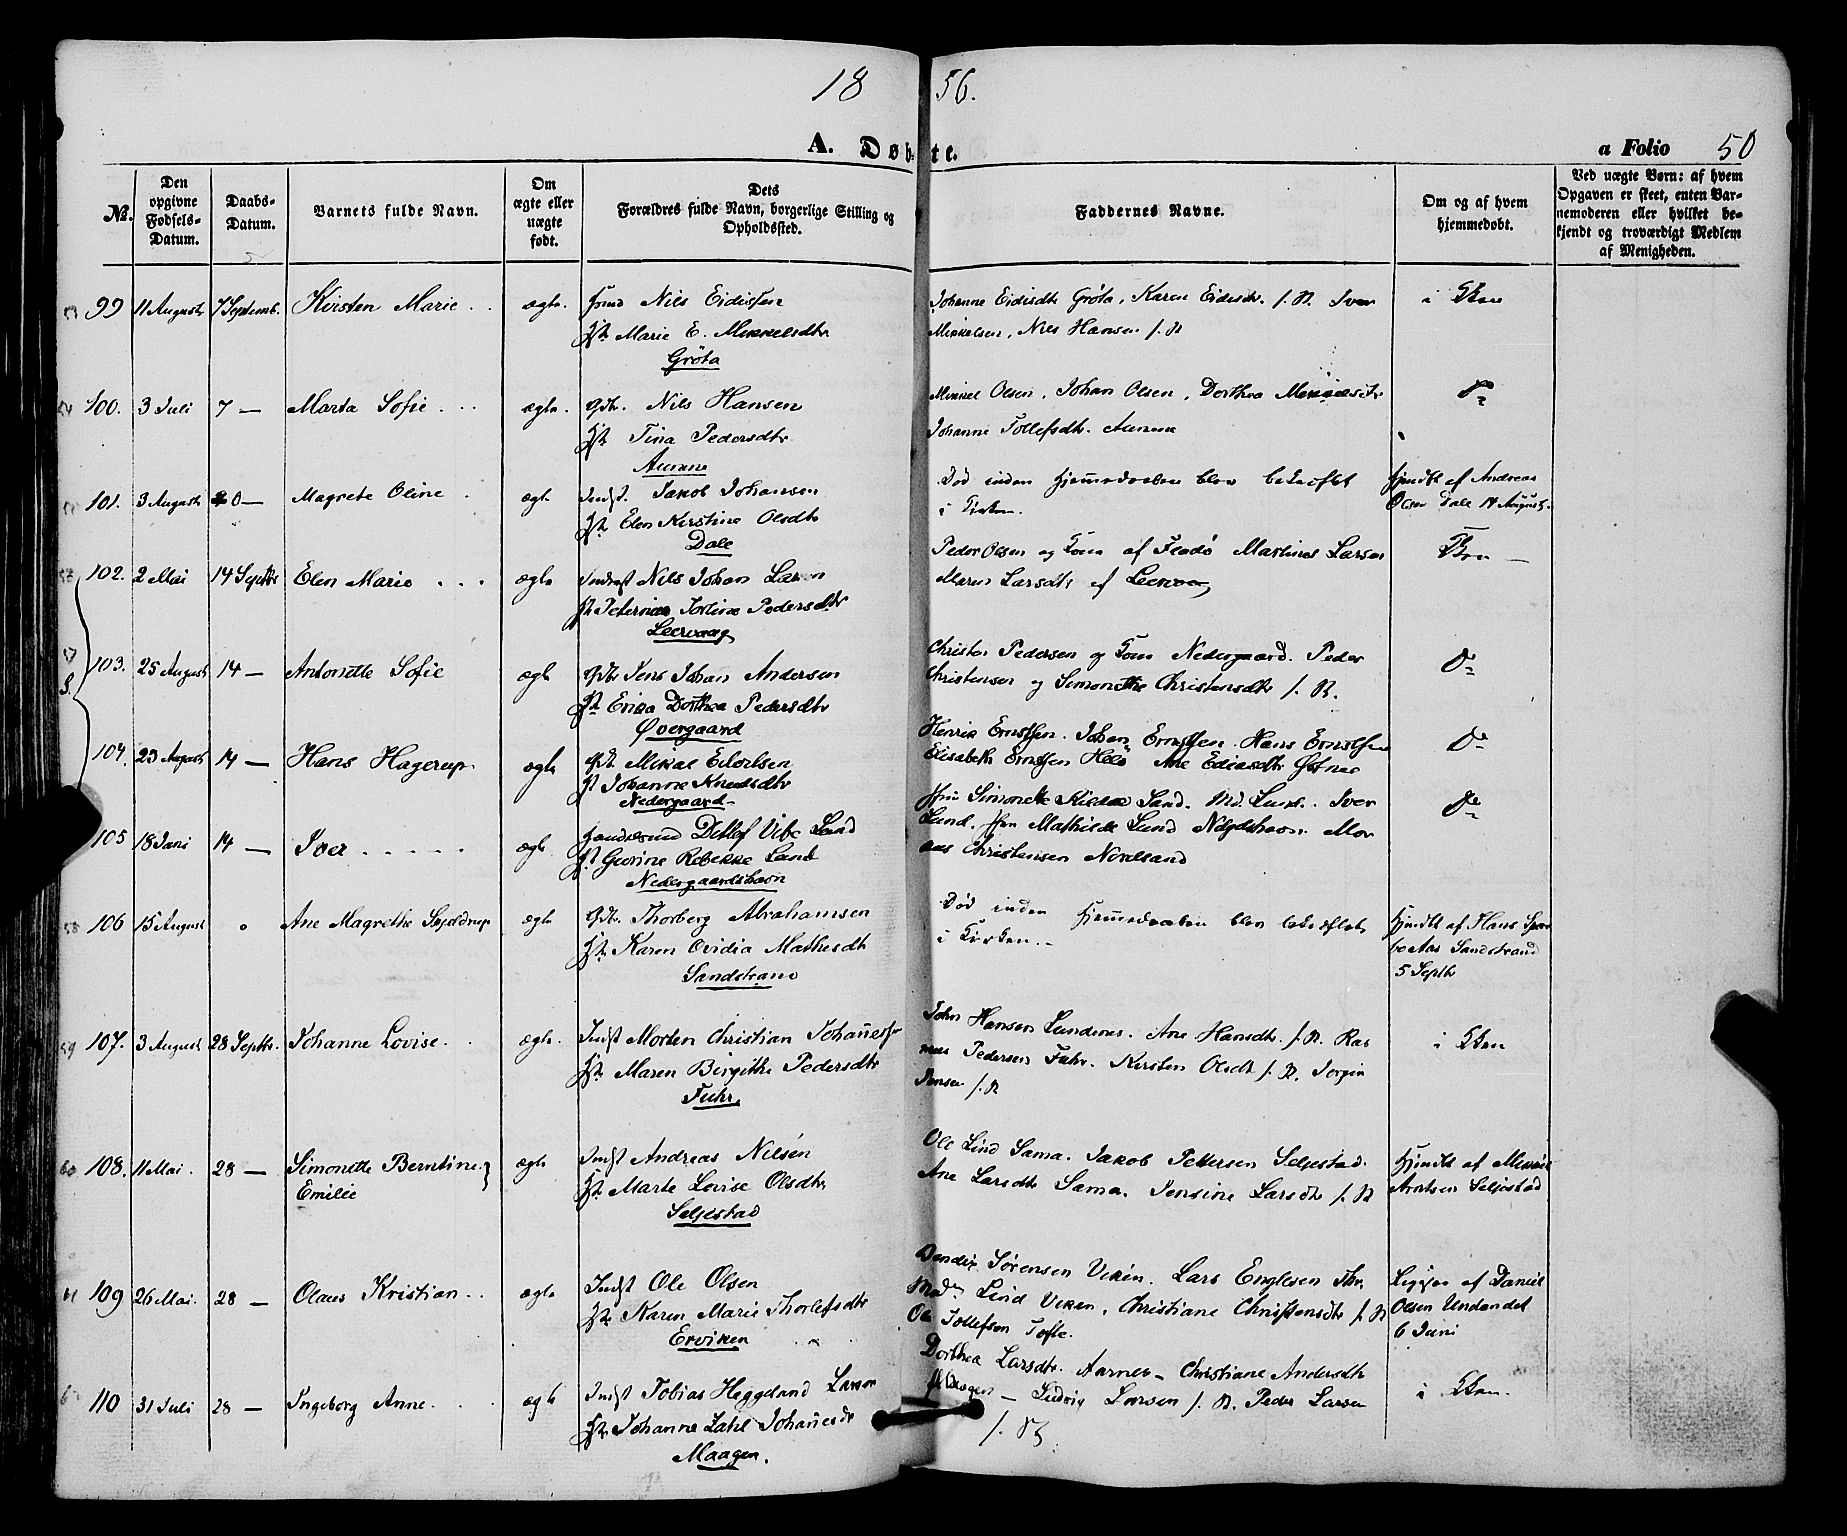 18 56.
A. Døbte.
a Folio 50
No.
Den opgivne Fødsels-Datum.
Daabs-Datum.
Barnets fulde Navn.
Om ægte eller uægte født.
Dets Forældres fulde Navn, borgerlige Stilling og Opholdssted.
Faddernes Navne.
Om og af hvem hjemmedøbt.
Ved uægte Børn: af hvem Opgaven er skeet, enten Barnemoderen eller hvilket bekjendt og troværdigt Medlem af Menigheden.
99 11 August 7 Septemb. Kirsten Marie . . ægte. Nils Eidissen
Marie E. Mikkelsdtr
Gröta
Johanne Eidisdtr Gröta, Karen Eidisdtr. s. St. Iver
Mikkelsen, Nils Hansen s. St
i Kken
100. 3 Juli 7 — Marta Sofie . . . ægte. Gdbr. Nils Hansen
Hst Tina Pedersdtr
Aunene
Mikkel Olsen, Johan Olsen, Dorthea Mikkelsdtr
Johanne Tollefsdtr. Aunene
Do
101. 3 August 20 — Magrete Oline . ægte Indst. Jakob Johansen
Hst Elen Kirstine Olsdtr
Dale
Død inden Hjemmedaaben blev bekræftet
i Kirken.
Hjmdbt af Andreas
Olsen Dale 14 August.
102. 2 Mai 14 Septbr Elen Marie . . . ægte Indst Nils Johan Larsen
Hst Peternia Pedersdtr
Leervaag
Peder Olsen og Kone af Martines Larsen
Maren Larsdtr af Leervaag
Kken —
103. 25 August 14 — Antonette Sofie ægte Gdbr Jens Johan Andersen
Hst Erika Dorthea Pedersdtr
Øvergaard
Christen Pedersen og Kone Nedergaard. Peder
Christensen og Simonette Christensdtr s. St.
Do
104. 23 August 14 — Hans Hagerup. ægte Gdbr Mikal Edortsen
Hst Johanne Knudsdtr
Nedergaard
Henrik Ernstsen. Johan Ernstsen. Hans Ernstsen
Elisabeth Ernstsen Ane
Do
105 18 Juni 14 — Iver . . . . . ægte Handelsmd Detlef Vibe Lund
Hst Gurine Rebekke Lund
Nedergaardshavn
Simonette Lund. Md. Lund. Iver
Lund. Mathilde Lund
Christensen Nordsand
Do
106 15 August " Ane Magrethe Skjeldrup ægte Gdbr. Thorberg Abrahamsen
Hst Karen Ovidia Mathisdtr
Sandstrand
Død inden Hjemmedaaben blev bekræftet
i Kirken. —
Hjmdbt af Hans
Sandstrand
5 Septbr
107. 3 August 28 Septbr. Johanne Lovise. . ægte. Indst Morten Christian Johannessen
Hst Maren Birgithe Pedersdtr
Fuhr.
John Hansen Lundenes. Ane Hansdtr. s. St. Ras
mus Pedersen Fuhr. Kirsten Olsdtr s. St. Jørgen
Jensen s. St
i Kken
108. 11 Mai. 28 — Simonette Berntine
Emilie
ægte Indst Andreas Nilsen
Hst Marte Lovise Olsdtr
Seljestad
Ole Lind Sama. Jakob Pettersen Seljestad.
Ane Larsdtr Sama. Jensine Larsdtr s. St
Hjmdbt af Mikkel
Arntsen Seljestad
109 26 Mai. 28 — Olaus Kristian . . ægte Indst Ole Olsen
Hst Karen Marie Thorlefsdtr
Erviken
Bendix Sørensen Viken. Lars Englesen
Mad. Lind Viken, Christiane Christensdtr s. St
Ole Tollefsen Tofte.
Ligesaa af Daniel
Olsen Undendet
6 Juni
110 31 Juli 28 — Ingeborg Anne . . . ægte Indst Tobias Heggeland Larsen
Hst Johanne Zahl Johannesdr
Maagen.
Dorthea Larsdtr. Aarnes — Christiane Andersdtr
Maagen — Ludvig Larsen s. St. Peder Larsen
s. St
i Kken.